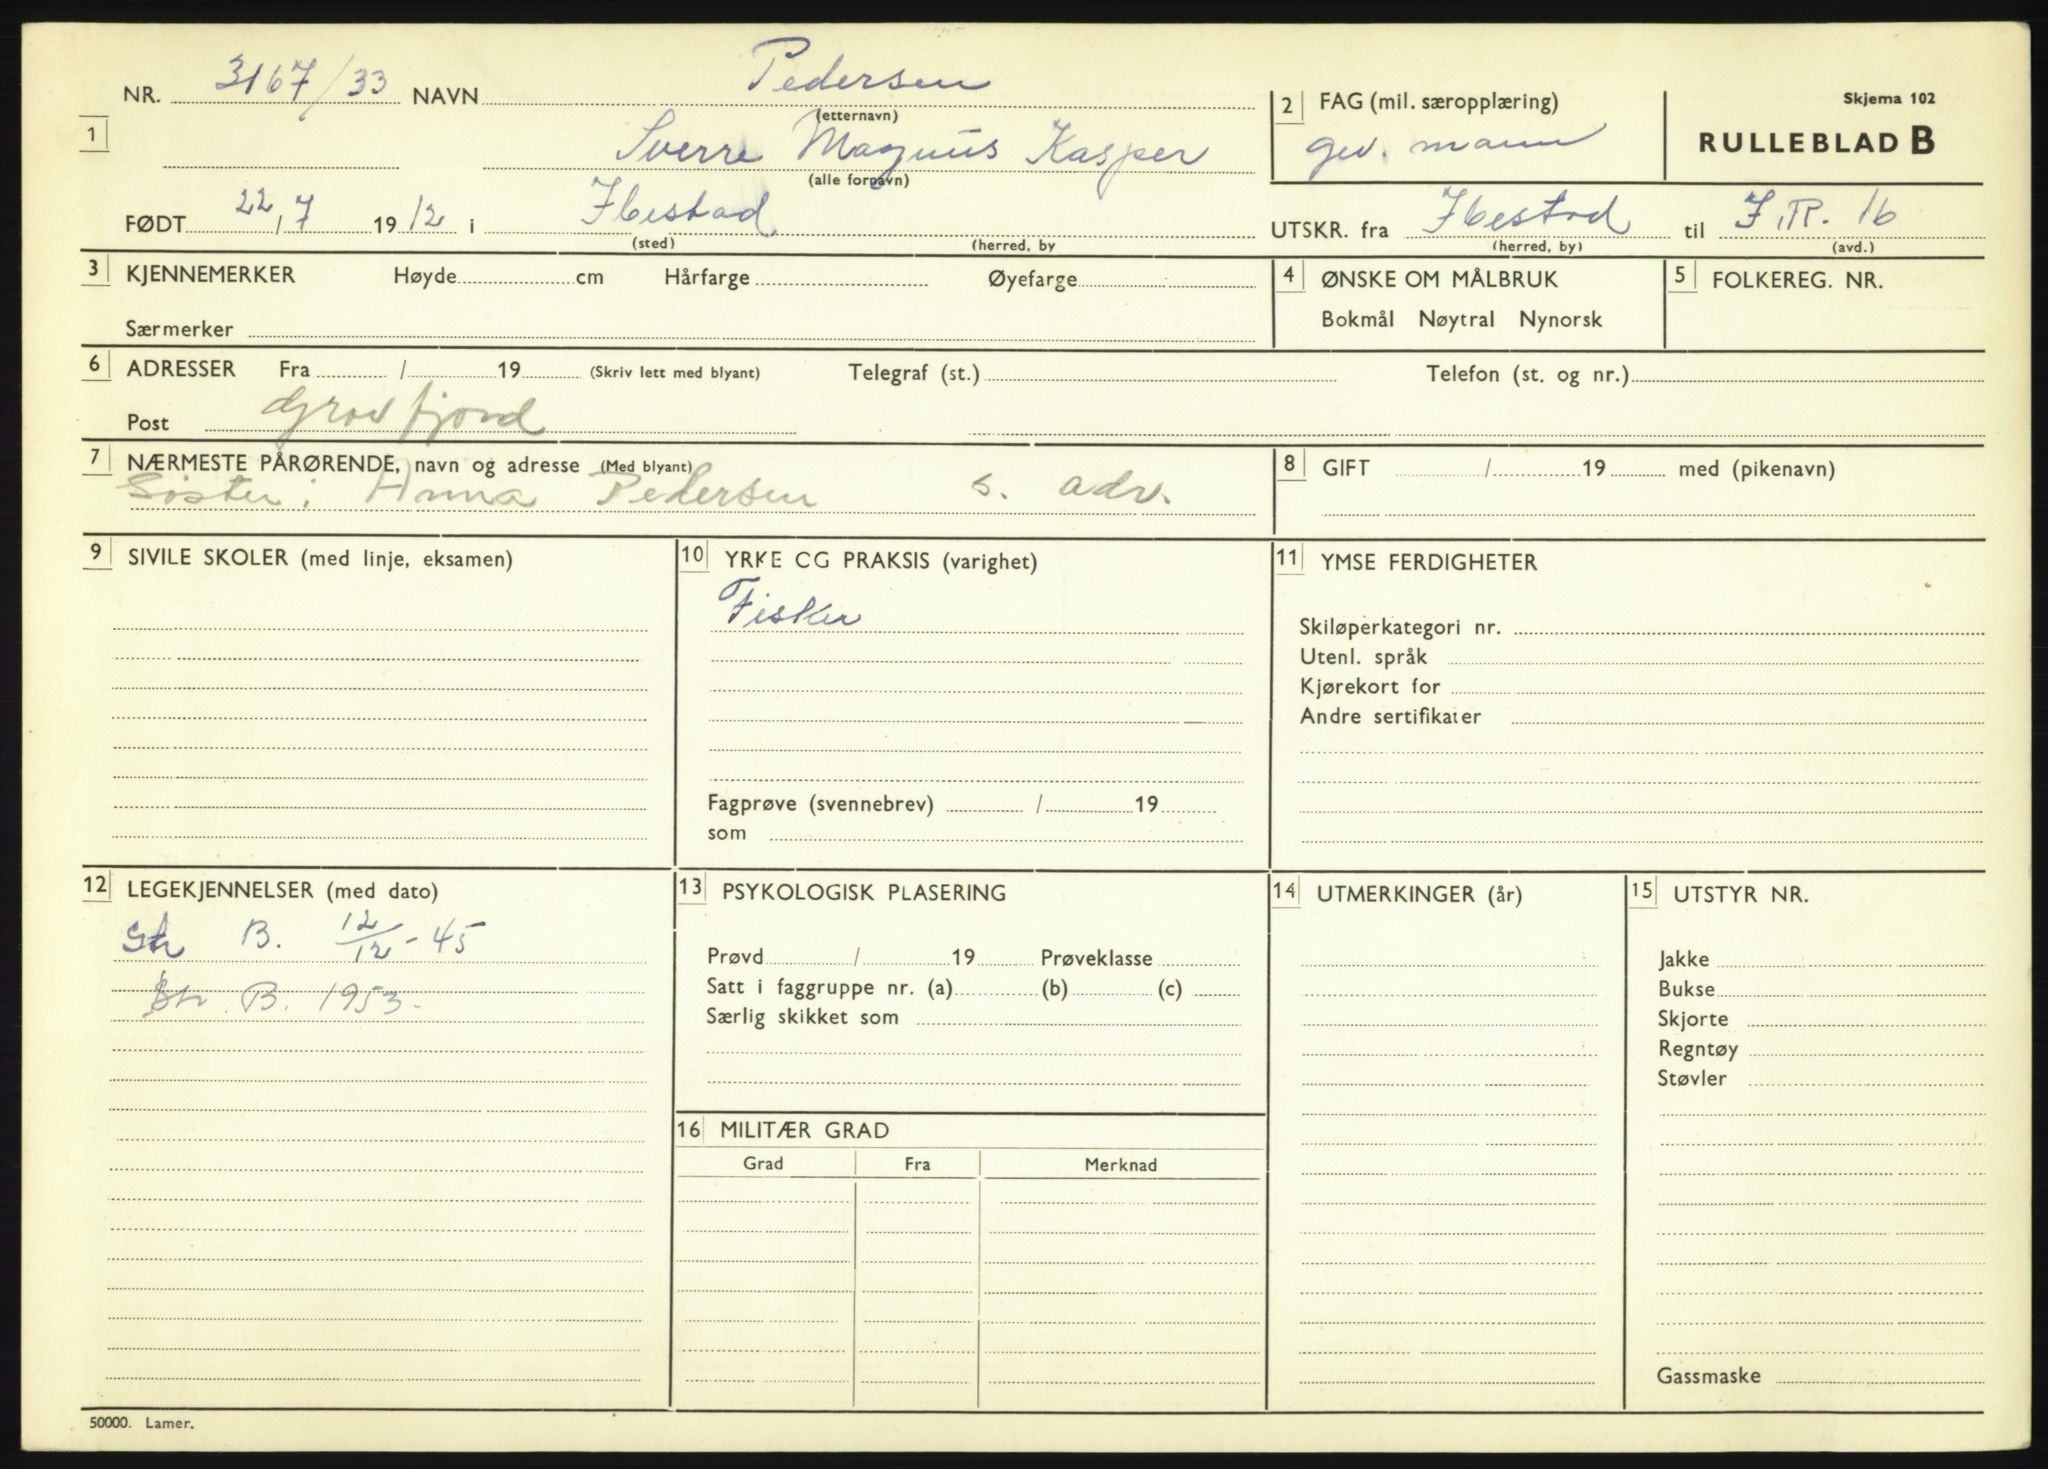 NR. 3167/33 NAVN Pedersen
(etternavn)
1 Sverre Magnus Kasper
(alle fornavn)
2 FAG (mil. særopplæring)
gev. mann
Skjema 102
RULLEBLAD B
FØDT 22/7 1912 i Ibestad
(sted) (herred, by
UTSKR. fra Ibestad til I.R. 16
(herred, by) (avd.)
3 KJENNEMERKER Høyde cm Hårfarge Øyefarge
Særmerker
4 ØNSKE OM MÅLBRUK
Bokmål Nøytral Nynorsk
5 FOLKEREG. NR.
6 ADRESSER Fra / 19 (Skriv lett med blyant) Telegraf (st.) Telefon (st. og nr.)
Post Grovfjord
7 NÆRMESTE PÅRØRENDE, navn og adresse (Med blyant)
Søster: Anna Pedersen s. adr.
8 GIFT / 19 med (pikenavn)
9 SIVILE SKOLER (med linje, eksamen)
10 YRKE CG PRAKSIS (varighet)
Fisker
Fagprøve (svennebrev) / 19
som
11 YMSE FERDIGHETER
Skiløperkategori nr.
Utenl. språk
Kjørekort for
Andre sertifikater
12 LEGEKJENNELSER (med dato)
Str B. 12/12-45
Str. B. 1953.
13 PSYKOLOGISK PLASERING
Prøvd / 19 Prøveklasse
Satt i faggruppe nr. (a) (b) (c)
Særlig skikket som
14 UTMERKINGER (år)
15 UTSTYR NR.
Jakke
Bukse
Skjorte
Regntøy
Støvler
Gassmaske
16 MILITÆR GRAD
Grad Fra Merknad
50000. Lamer.